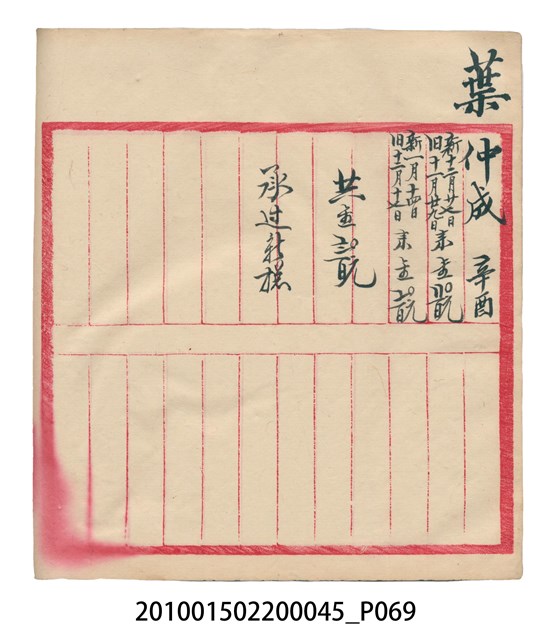 葉仲成 辛酉
新十二月廿七日
旧十一月廿九日
來金
新一月十四日
旧十二月十七日
來金
共金
承过新
201001502200045_P069